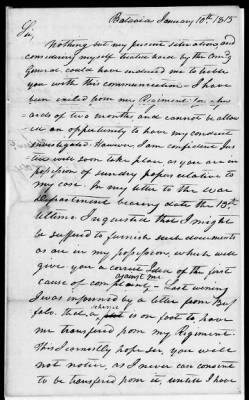 Batavia January 10th 1815
Sir,
Nothing but my present situation, and
considering myself treated hard by the Comdg
General could have induced me to trouble
you with this communication. I have
been exiled from my Regiment for up-
wards of two months, and cannot be allow-
ed an opportunity to have my conduct
investigated. However, I am confident Jus-
tice will soon take place as you are in
possession of sundry papers relative to
my case. In my letter to the War
Department bearing date the 13th
Ultimo I requested that I might
be suffered to furnish such documents
as are in my possession, which will
give you a correct Idea of the first
cause of complaint against me. Last evening
I was informed by a letter from Buf
falo. that a scheme is on foot to have
me transferred from my Regiment.
This I earnestly hope sir, you will
not notice, as I never can consent
to be transferred from it, until I have